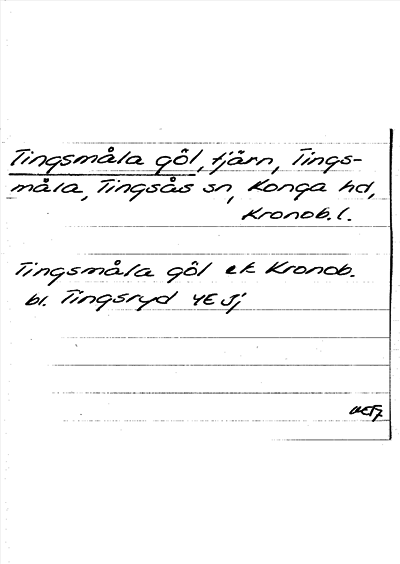 Tingsmåla göl, tjärn, Tings-
måla, Tingsås sn, Konga hd,
Kronob. l.
Tingsmåla göl ek Kronob.
bl. Tingsryd 4E Jj